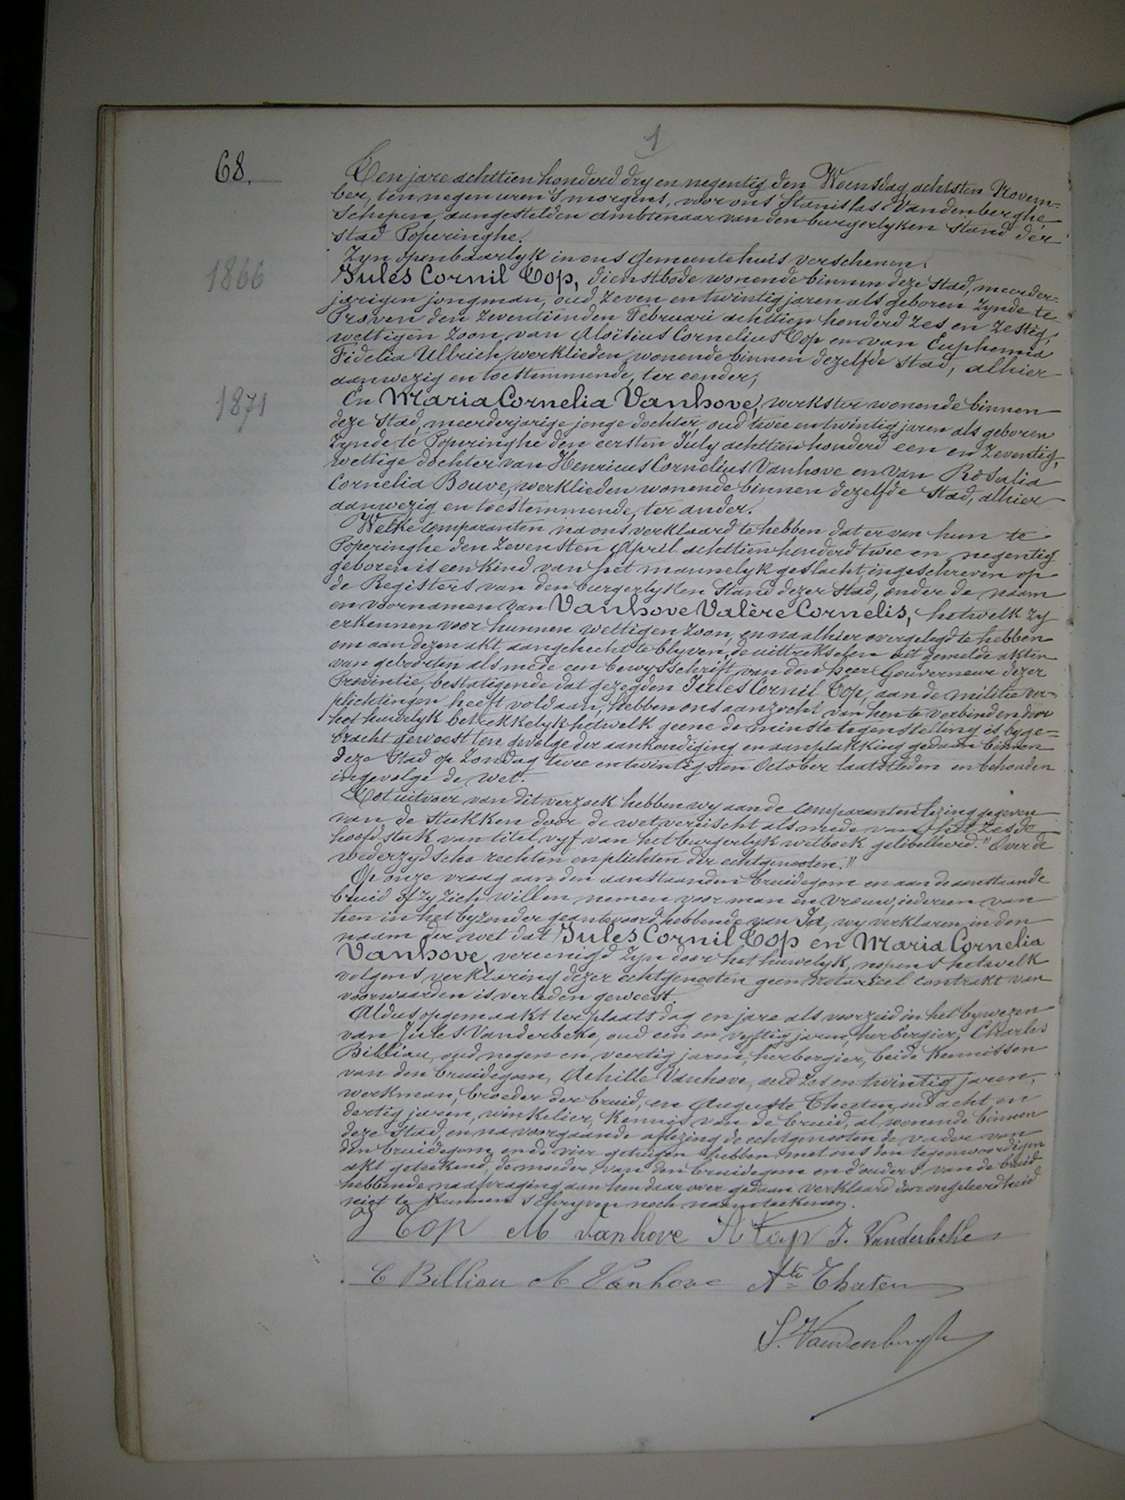 1
68.
Ten jare achttien honderd dry en negentig den Woensdag achtsten Novem=
ber, ten negen uren 's morgens, voor ons Stanislas Vandenberghe
Schepen, aangestelden ambtenaar van den burgerlyken stand der
stad Poperinghe.
Zyn openbaarlyk in ons Gemeentehuis verschenen:
1866
Jules Cornil Top, dienstbode wonende binnen deze stad, meerder=
jarigen jongman, oud zeven en twintig jaren als geboren zynde te
Proven den zeventienden Februari achttien honderd zes en zestig,
wettigen zoon van Aloïsius Cornelius Top en van Euphemia
Fidelia Ullrich, werklieden, wonende binnen dezelfde stad, alhier
aanwezig en toestemmende, ter eender;
1871
En Maria Cornelia Vanhove, werkster wonende binnen
deze Stad, meerderjarige jonge dochter oud twee en twintig jaren als geboren
zynde te Poperinghe den eersten July achttien honderd een en zeventig,
wettige dochter van Henricus Cornelius Vanhove en van Rosalia
Cornelia Bouve, werklieden wonende binnen dezelfde Stad, alhier
aanwezig en toestemmende, ter ander.
Welke comparanten na ons verklaard te hebben dat er van hun te
Poperinghe den zevensten April achttien honderd twee en negentig
geboren is een kind van het mannelyk geslacht, ingeschreven op
de Registers van den burgerlyken Stand dezer Stad, onder de naam
en voornamen van Vanhove Valère Cornelis, hetwelk zy
erkennen voor hunnen wettigen zoon, en na alhier overgelegd te hebben
om aan dezen akt aangehecht te blyven, de uittreksels uit gemelde akten
van geboorten alsmede een bewysschrift van den Heer Gouverneur dezer
Provintie, bestatigende dat gezegden Jules Cornil Top, aan de militie ver=
plichtingen heeft voldaan, hebben ons aanzocht van hen te verbinden door
het huwelyk betrekkelyk hetwelk geene de minste tegenstelling is byge=
bracht geweest ten gevolge der aankondiging en aanplakking gedaan binnen
deze Stad op Zondag twee en twintigsten October laatstleden en behouden
ingevolge de wet.
Tot uitvoer van dit verzoek hebben wy aan de comparanten lezing gegeven
van de stukken door de wet vereischt alsmede van het zesde
hoofdstuk van titel vyf van het burgerlyk wetboek getiteld "Over de
wederzydsche rechten en plichten der echtgenooten."
Op onze vraag aan den aanstaanden bruidegom en aan de aanstaande
bruid of zy zich willen nemen voor man en vrouw, iedereen van
hen in het byzonder geantwoord hebbende van Ja, wy verklaren in den
naam der wet dat Jules Cornil Top en Maria Cornelia
Vanhove, vereenigd zyn door het huwelyk, nopens hetwelk
volgens verklaring dezer echtgenooten geen notarieel contrakt van
voorwaarden is verleden geweest.
Aldus opgemaakt ter plaats dag en jare als voorzeid in het bywezen
van Jules Vanderbeke, oud een en vyftig jaren, herbergier, Charles
Billiau, oud negen en veertig jaren, herbergier, beide kennissen
van den bruidegom, Achille Vanhove, oud zes en twintig jaren,
werkman, broeder der bruid, en Auguste oud acht en
dertig jaren, winkelier, kennis van de bruid, al wonende binnen
deze Stad, en na voorgaande aflezing de echtgenooten de vader van
den bruidegom en de vier getuigen hebben met ons den tegenwoordigen
akt geteekend, de moeder van den bruidegom en d'ouders van de bruid
hebbende na afvraging aan hen daarover gedaan verklaard door ongeleerdheid
niet te kunnen schryven noch naamteekenen.
J Top M Vanhove A Top J. Vanderbeke
C Billiau A Vanhove Ate
S. Vandenberghe